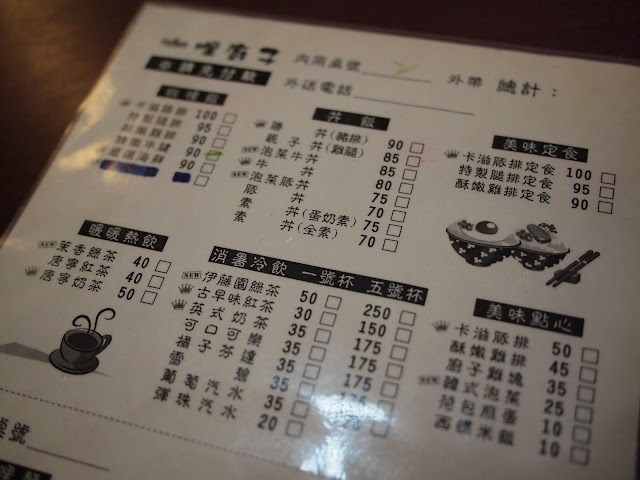 咖喱廚子
內用桌號 2 外帶 總計：
※請先付款
外送電話
咖哩飯
卡滋豚排 100
特製腿排 95
酥嫩雞排 90
90
嚴選海鮮 90
90
丼飯
勝丼(豬排) 90
親子丼(雞腿) 85
NEW 泡菜牛丼 85
牛丼 80
NEW 泡菜豚丼 75
豚丼 70
素丼(蛋奶素) 75
素丼(全素) 70
美味定食
卡滋豚排定食 100
特製腿排定食 95
酥嫩雞排定食 90
暖暖熱飲
NEW 茉香綠茶 40
唐寧紅茶 40
唐寧奶茶 50
消暑冷飲 一號杯 五號杯
NEW 伊藤園綠茶 50 250
古早味紅茶 30 150
英式奶茶 35 175
可口可樂 35 175
橘子芬達 35 175
雪碧 35 175
葡萄汽水 35 175
彈珠汽水 20
美味點心
卡滋豚排 50
酥嫩雞排 45
廚子雞塊 35
NEW 韓式泡菜 25
荷包煎蛋 10
西螺米飯 10
票號